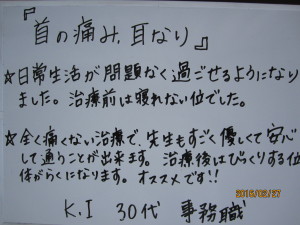 『首の痛み、耳なり』
☆日常生活が問題なく過ごせるようになり
ました。治療前は寝れない位でした。
☆全く痛くない治療で、先生もすごく優しくて安心
して通うことが出来ます。治療後はびっくりする位
体がらくになります。オススメです!!
K.I 30代 事務職
2015/02/27